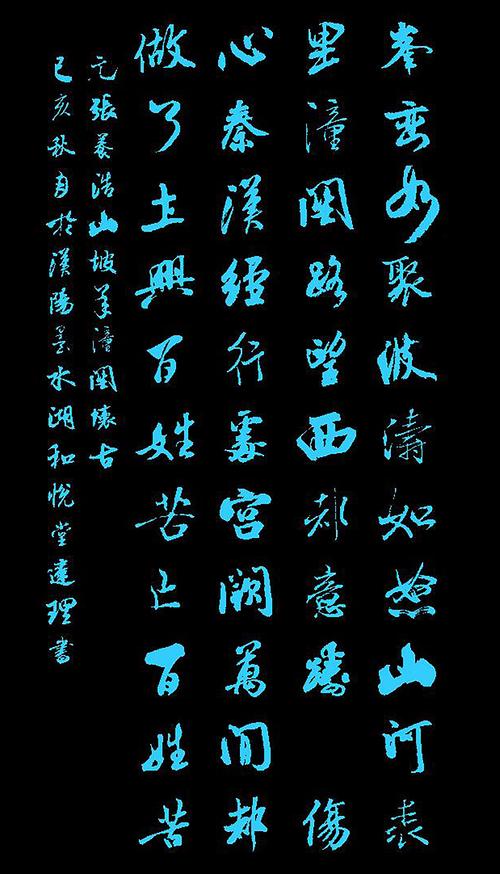 峯峦如聚波濤如怒山河表
里潼關路望西都意躊傷
心秦漢經行處宮闕萬間都
做了土興百姓苦亡百姓苦
元張養浩山坡羊潼關懷古
己亥秋月於漢陽墨水湖和悅堂理書